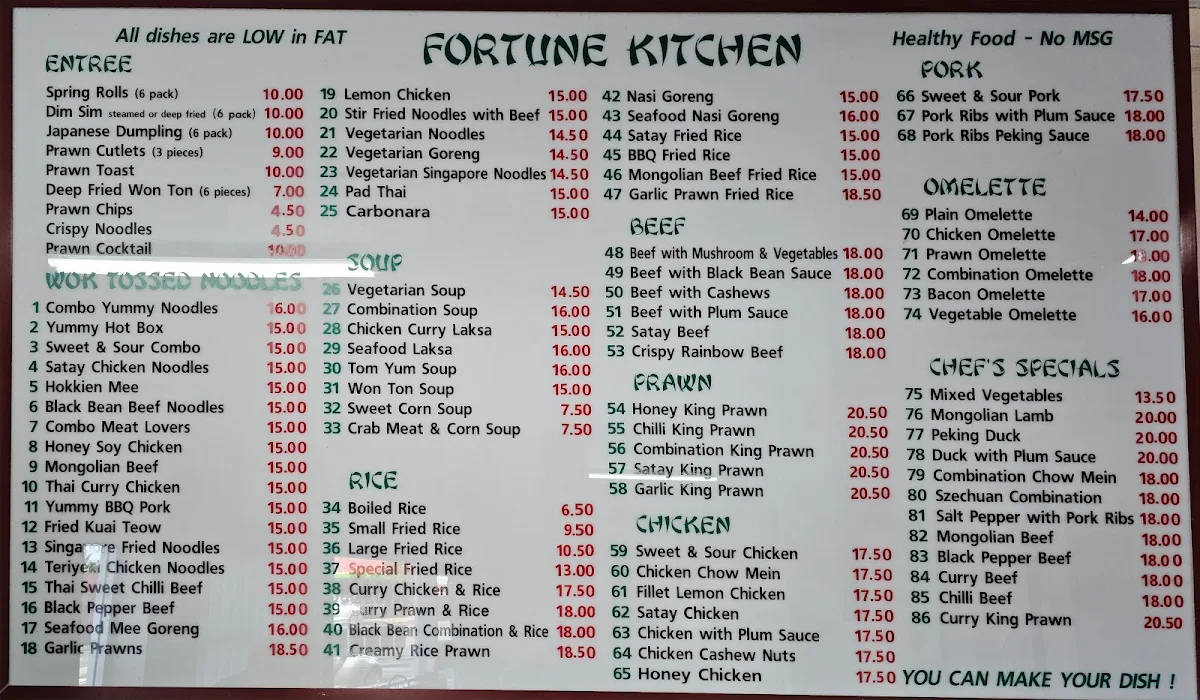 All dishes are LOW in FAT
FORTUNE KITCHEN
Healthy Food - No MSG
ENTREE
Spring Rolls (6 pack) 10.00
Dim Sim steamed or deep fried (6 pack) 10.00
Japanese Dumpling (6 pack) 10.00
Prawn Cutlets (3 pieces) 9.00
Prawn Toast 10.00
Deep Fried Won Ton (6 pieces) 7.00
Prawn Chips 4.50
Crispy Noodles 4.50
Prawn Cocktail 10.00
WOK TOSSED NOODLES
1 Combo Yummy Noodles 16.00
2 Yummy Hot Box 15.00
3 Sweet & Sour Combo 15.00
4 Satay Chicken Noodles 15.00
5 Hokkien Mee 15.00
6 Black Bean Beef Noodles 15.00
7 Combo Meat Lovers 15.00
8 Honey Soy Chicken 15.00
9 Mongolian Beef 15.00
10 Thai Curry Chicken 15.00
11 Yummy BBQ Pork 15.00
12 Fried Kuai Teow 15.00
13 Singapore Fried Noodles 15.00
14 Teriyeki Chicken Noodles 15.00
15 Thai Sweet Chilli Beef 15.00
16 Black Pepper Beef 15.00
17 Seafood Mee Goreng 16.00
18 Garlic Prawns 18.50
19 Lemon Chicken 15.00
20 Stir Fried Noodles with Beef 15.00
21 Vegetarian Noodles 14.50
22 Vegetarian Goreng 14.50
23 Vegetarian Singapore Noodles 14.50
24 Pad Thai 15.00
25 Carbonara 15.00
SOUP
26 Vegetarian Soup 14.50
27 Combination Soup 16.00
28 Chicken Curry Laksa 15.00
29 Seafood Laksa 16.00
30 Tom Yum Soup 16.00
31 Won Ton Soup 15.00
32 Sweet Corn Soup 7.50
33 Crab Meat & Corn Soup 7.50
RICE
34 Boiled Rice 6.50
35 Small Fried Rice 9.50
36 Large Fried Rice 10.50
37 Special Fried Rice 13.00
38 Curry Chicken & Rice 17.50
39 Curry Prawn & Rice 18.00
40 Black Bean Combination & Rice 18.00
41 Creamy Rice Prawn 18.50
42 Nasi Goreng 15.00
43 Seafood Nasi Goreng 16.00
44 Satay Fried Rice 15.00
45 BBQ Fried Rice 15.00
46 Mongolian Beef Fried Rice 15.00
47 Garlic Prawn Fried Rice 18.50
BEEF
48 Beef with Mushroom & Vegetables 18.00
49 Beef with Black Bean Sauce 18.00
50 Beef with Cashews 18.00
51 Beef with Plum Sauce 18.00
52 Satay Beef 18.00
53 Crispy Rainbow Beef 18.00
PRAWN
54 Honey King Prawn 20.50
55 Chilli King Prawn 20.50
56 Combination King Prawn 20.50
57 Satay King Prawn 20.50
58 Garlic King Prawn 20.50
CHICKEN
59 Sweet & Sour Chicken 17.50
60 Chicken Chow Mein 17.50
61 Fillet Lemon Chicken 17.50
62 Satay Chicken 17.50
63 Chicken with Plum Sauce 17.50
64 Chicken Cashew Nuts 17.50
65 Honey Chicken 17.50
PORK
66 Sweet & Sour Pork 17.50
67 Pork Ribs with Plum Sauce 18.00
68 Pork Ribs Peking Sauce 18.00
OMELETTE
69 Plain Omelette 14.00
70 Chicken Omelette 17.00
71 Prawn Omelette
72 Combination Omelette 18.00
73 Bacon Omelette 17.00
74 Vegetable Omelette 16.00
CHEF'S SPECIALS
75 Mixed Vegetables 13.50
76 Mongolian Lamb 20.00
77 Peking Duck 20.00
78 Duck with Plum Sauce 20.00
79 Combination Chow Mein 18.00
80 Szechuan Combination 18.00
81 Salt Pepper with Pork Ribs 18.00
82 Mongolian Beef 18.00
83 Black Pepper Beef 18.00
84 Curry Beef 18.00
85 Chilli Beef 18.00
86 Curry King Prawn 20.50
YOU CAN MAKE YOUR DISH !